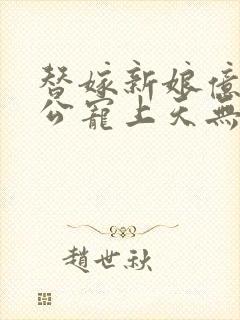 替嫁新娘億
公寵上天無
趙世秋